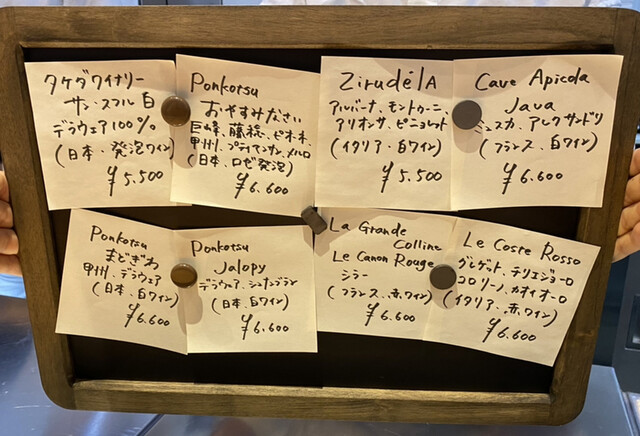 タケダワイナリー
サン・スフル 白
デラウェア100%
(日本・発泡ワイン)
¥5.500
Ponkotsu
おやすみなさい
巨峰、藤稔、ピオーネ、
甲州、プティマンサン、メルロ
(日本、ロゼ発泡)
¥6.600
ZirudélA
アルバーナ、モントゥーニ、
アリオンサ、ピニョレット
(イタリア・白ワイン)
¥5.500
Cave Apicola
Java
ミュスカ、アレクサンドリ
(フランス、白ワイン)
¥6.600
Ponkotsu
まどぎわ
甲州、デラウェア
(日本、白ワイン)
¥6.600
Ponkotsu
Jalopy
デラウェア、シュナンブラン
(日本、白ワイン)
¥6.600
La Grande
Colline
Le Canon Rouge
シラー
(フランス、赤ワイン)
¥6.600
Le Coste Rosso
グレゲット、チリエジョーロ
コロリーノ、カオイオーロ
(イタリア、赤ワイン)
¥6.600